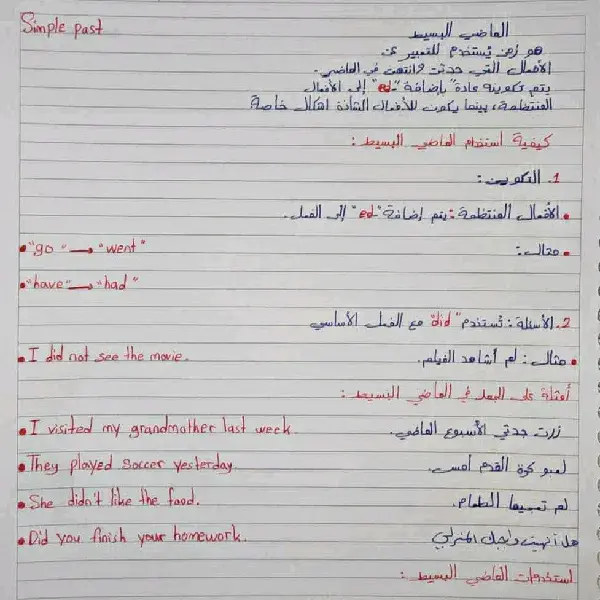 Simple past
الماضي البسيط
هو زمن يُستخدم للتعبير عن
الأفعال التي حدثت وانتهت في الماضي.
يتم تكوينه عادة" بإضافة "ed" إلى الأفعال
المنتظمة، بينما يكون للأفعال الشاذة أشكال خاصة
كيفية استخدام الماضي البسيط :
1. التكوين :
• الأفعال المنتظمة : يتم إضافة "ed" إلى الفعل.
• مثال :
• "go" → "went"
• "have" → "had"
2. الأسئلة : تُستخدم "did" مع الفعل الأساسي
• مثال : لم أشاهد الفيلم.
• I did not see the movie.
أمثلة على الجمل في الماضي البسيط :
• I visited my grandmother last week.
زرت جدتي الأسبوع الماضي.
• They played soccer yesterday.
لعبو كرة القدم أمس.
• She didn't like the food.
لم الطعام.
• Did you finish your homework.
هل أنهيت واجبك المنزلي
استخدامات الماضي البسيط :